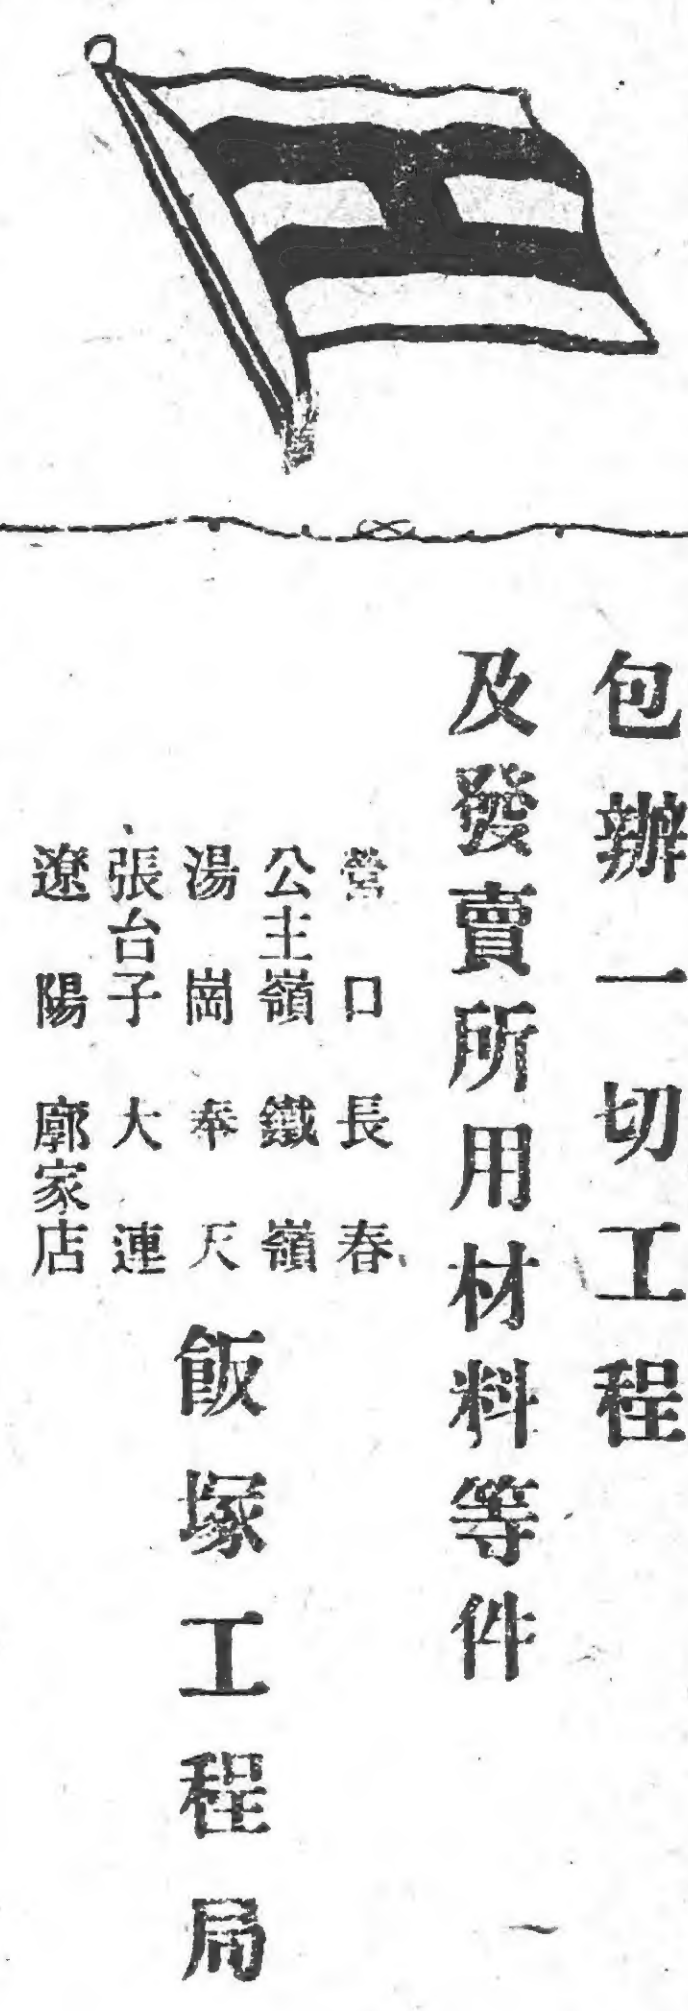 包辦一切工程
及發賣所用材料等件
營口長春
公主嶺鐵嶺
湯崗奉天
張台子大連
遼陽廓家店
飯塚工程局